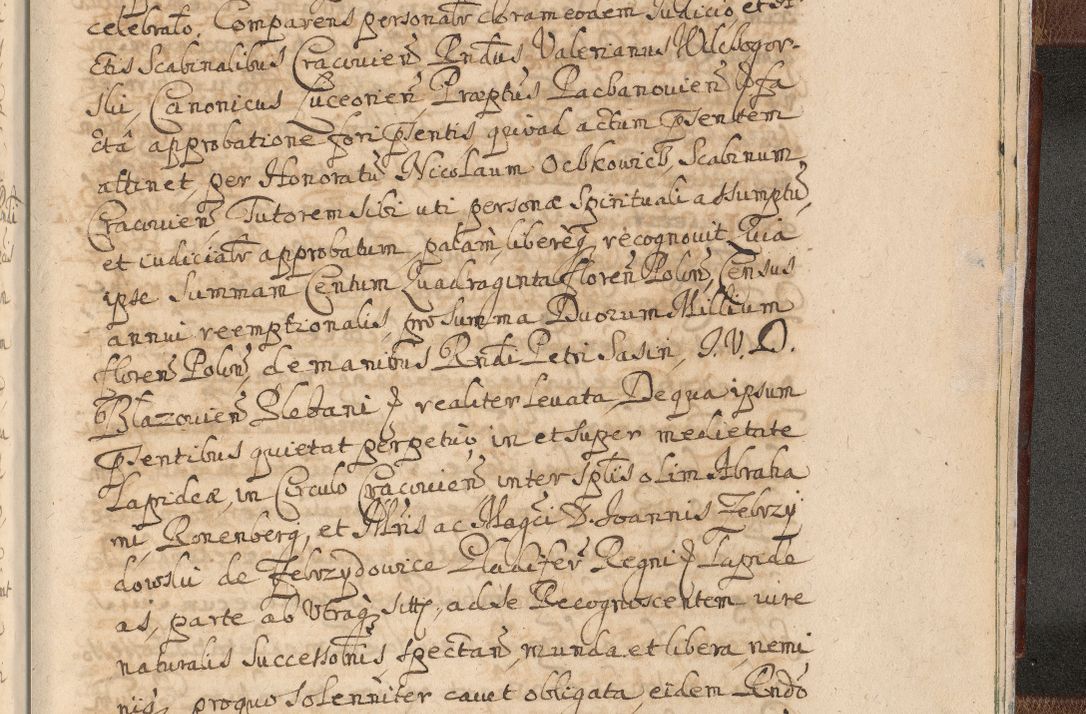 celebrato. Comparens personalr̃ coram eodem Iudicio, et
ctis Scabinalibus Cracovień Rndus Valerianus Wilchogor-
ski, Canonicus Luceorień, Præptus Pacbanovień p̱ fa
ctã approbatione fori p̃sentis, quoad actum p̃sentem
attinet, per Honoratũ Nicolaum Ochkowicz, Scabinum
Cracovień, Tutorem sibi uti personæ Spirituali assumptũ,
et iudicialr̃ approbatum, palam, libereq̃ recognovit, Quia
ipse summam Centum Quadraginta floreń Poloń, Census
annui reemptionalis, pro summa Duorum Millium
floreń Poloń, de manibus Rndi Petri Sasin, I. V. D.
Blazovień Plebani p̱ realiter levata, De qua ipsum
p̃sentibus quietat perpetuo, in et super medietate
Lapideæ, in Circulo Cracovień inter Sptlis olim Abraha
mi Ronenberg, et Illris ac Magci D. Ioannis Zebrzy
dowski de Zebrzydowice Gladiferi Regni p̱ Lapide
as, parte ab utraq̃ sittą, ad se Recognoscentem iure
naturalis successionis spectań, munda et libera, nemi
niq̃, pro quo solenniter cavet obligata, eidem Rndo